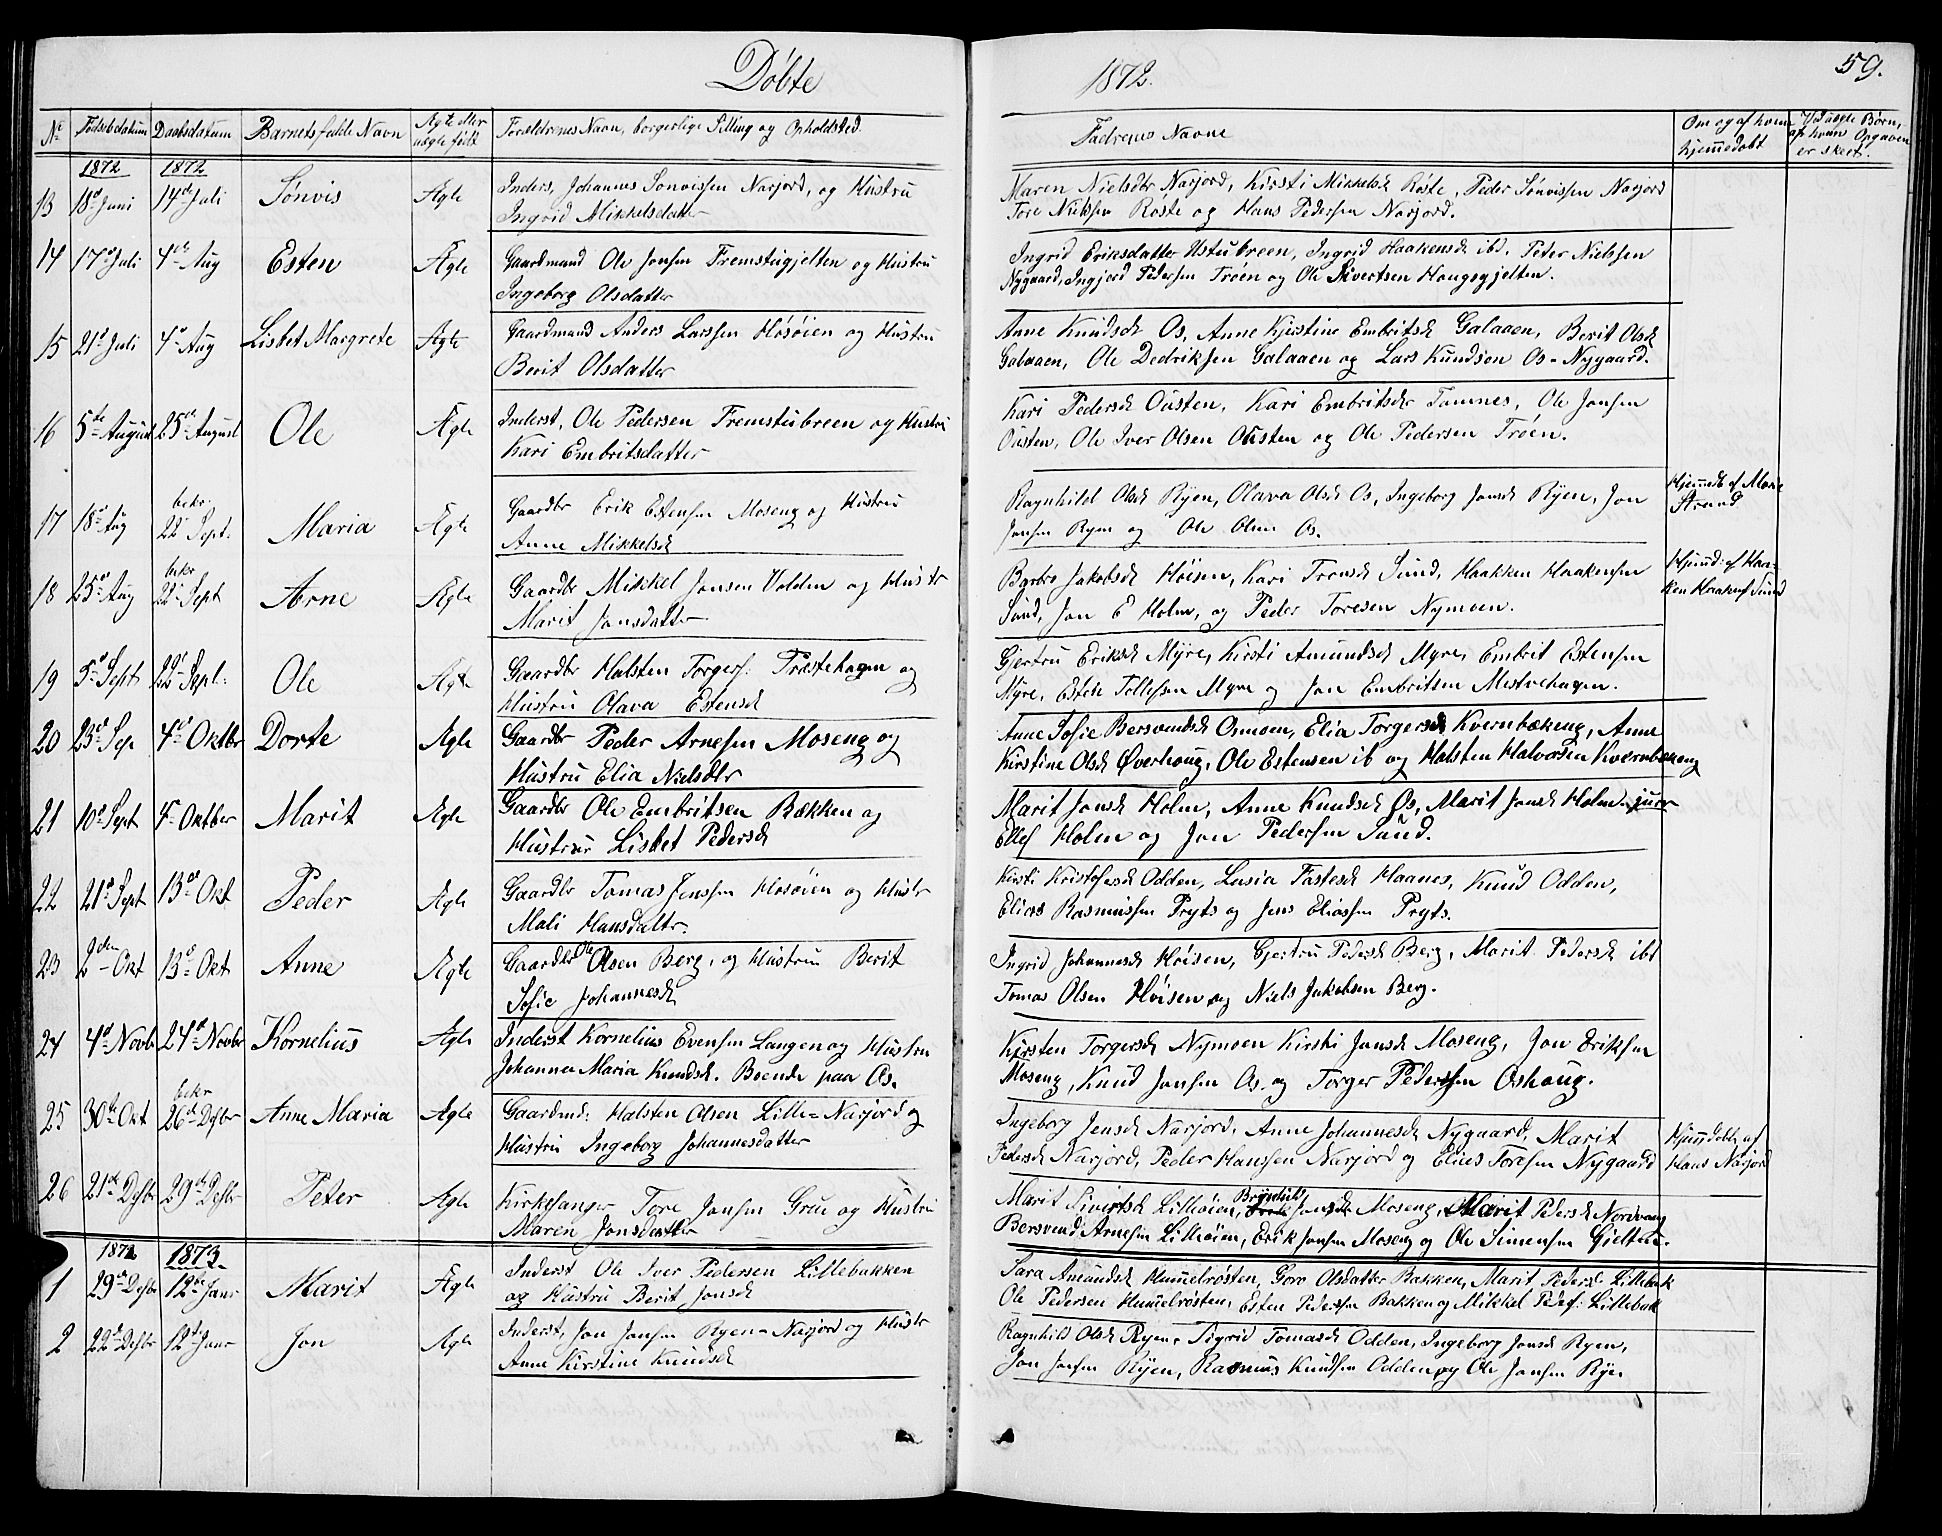 Døbte
1872.
59.
No Fødselsdatum Daabsdatum Barnets fulde Navn Ægte eller uægte født Forældrenes Navn, borgerlige Stilling og Opholdsted. Fadrenes Navne Om og af hvem hjemmedøbt Ved uægte Børn, af hvem Opgaven er skeet.
1872 1872
13 18de Juni 14de Juli Sønvis Ægte Inders, Johannes Sønvissen Narjord, og Hustru
Ingrid Mikkelsdatter
Maren Nielsdtr Narjord, Kirsti Mikkelsd Røste, Peder Sønvissen Narjord
Tore Nielsen Røste og Hans Pedersen Narjord.
14 17de Juli 4de Aug Esten Ægte Gaardmand Ole Jonsen Fremstugjelten og Hustru
Ingeborg Olsdatter
Ingrid Eriksdatter Ustubreen, Ingrid Haakensd ibd. Peter Nielsen
Nygaard, Ingjerd Pedersen Trøen og Ole Sivertsen Haugsgjelten.
15 21de Juli 4de Aug Lisbet Margrete Ægte Gaardmand Anders Larssen Hosøien og Hustru
Berit Olsdatter
Anne Knudsd Os, Anne Kjerstine Embritsd Galaaen, Berit Olsd
Galaaen, Ole Dedriksen Galaaen og Lars Knudsen Os-Nygaard.
16 5te August 25de August Ole Ægte Inderst, Ole Pedersen Fremstubreen og Hustru
Kari Embritsdatter
Kari Pedersd Ousten, Kari Embritsdtr Tamnes, Ole Jonsen
Ousten, Ole Iver Olsen Ousten og Ole Pedersen Trøen.
17 18de Aug bekr. 22de Sept. Maria Ægte Gaardbr Erik Estensen Moseng og Hustru
Anne Mikkelsd
Ragnhild Olsd Ryen, Olava Olsd Os, Ingeborg Jonsd Ryen, Jon
Jonsen Ryen og Ole Olsen Os.
Hjemmdt af Mone
Strand
18 25de Aug bekr 22de Sept Arne Ægte Gaardbr Mikkel Jonsen Volden og Hustr
Marit Jonsdatter
Barbro Jakobsd Høisen, Kari Tronsd Sund, Haakken Haakensen
Sund, Jon E Holm, og Peder Toresen Nymoen.
Hjemd: af Haa-
ken Haakens Sund
19 5te Sept 22de Sept: Ole Ægte Gaardbr Halsten Torgers: Præstehagen og
Hustru Olava Estensd
Gjertru Eriksd Myre, Kirsti Amundsd Myre, Embrit Estensen
Myre, Esten Tollefsen Myre og Jon Embritsen Mestvehagen.
20 23de Sep 4de Oktbr Dorte Ægte Gaardbr Peder Arnesen Moseng og
Hustru Elia Nielsdtr
Anne Sofie Bersvendsd Onmoen, Elia Torgersd Kvernbækeng, Anne
Kirstine Olsd Øverhoug, Ole Estensen ib og Halsten Halvorsen Kvernbækeng
21 10de Sept 4de Oktber Marit Ægte Gaardbr Ole Embritsen Bækken og
Hustru Lisbet Pedersd
Marit Jonsd Holm, Anne Knudsd Os, Marit Jonsd Holm-junr
Ellef Holm og Jon Pedersen Sund.
22 21de Sept 13de Okt Peder Ægte Gaardbr Tomas Jenssen Hosøien og Hustr
Mali Hansdattr.
Kirsti Kristofersd Odden, Lusia Fastesd Haanes, Knud Odden,
Elias Rasmussen Pryts og Jens Eliassen Pryts.
23 2den Okt 13de Okt Anne Ægte Gaardbr Ole Olsen Berg, og Hustru Berit
Sofie Johannesd
Ingrid Johannesd Høisen, Gjertru Pedersd Berg, Marit Pedersd ibd
Tomas Olsen Høisen og Niels Jakobsen Berg.
24 4de Novbr 24de Novbr Kornelius Ægte Inderst Kornelius Evensen Langen og Hustru
Johanna Maria Knudsd. Boende paa Os.
Kirsten Torgersd Nymoen Kirsti Jonsd Moseng, Jon Eriksen
Moseng, Knud Jonsen Os. og Torger Pedersen Oshoug.
25 30te Okt bekr 26de Desbr Anne Maria Ægte Gaardmd: Halsten Olsen Lille-Narjord og
Hustru Ingeborg Johannesdatter
Ingeborg Jensd Narjord, Anne Johannesd Nygaard, Marit
Pedersd Narjord, Peder Hansen Narjord og Elies Toresen Nygaard
Hjemmdøbt af
Hans Narjord
26 21de Desbr 29de Desbr Peter Ægte Kirkesanger Tore Jonsen Grue og Hustru
Maren Jonsdatter
Marit Sivertsd Lilleøien, Brynhild Jonsdtr Moseng, Marit Pedersd Nordvang
Bersvend Arnesen Lilleøien, Erik Jonsen Moseng og Ole Simensen Gjelten.
1872 1873
1 29de Desbr 12te Janr Marit Ægte Inderst Ole Iver Pedersen Lillebakken
og Hustru Berit Jonsd
Sara Amundsd Hummelrøsten, Goro Olsdatter Bakken, Marit Pedersd Lillebak
Ole Pedersen Hummelrøsten, Esten Pedersen Bakken og Mikkel Peders: Lillebak
2 22de Desbr 12te Janr Jon Ægte Inderst, Jon Jonsen Ryen-Narjord og Hustr
Anne Kirstine Knudsd
Ragnhild Olsd Ryen, Sigrid Tomasd Odden, Ingeborg Jonsd Ryen,
Jon Jonsen Ryen, Rasmus Knudsen Odden og Ole Jonsen Rye.